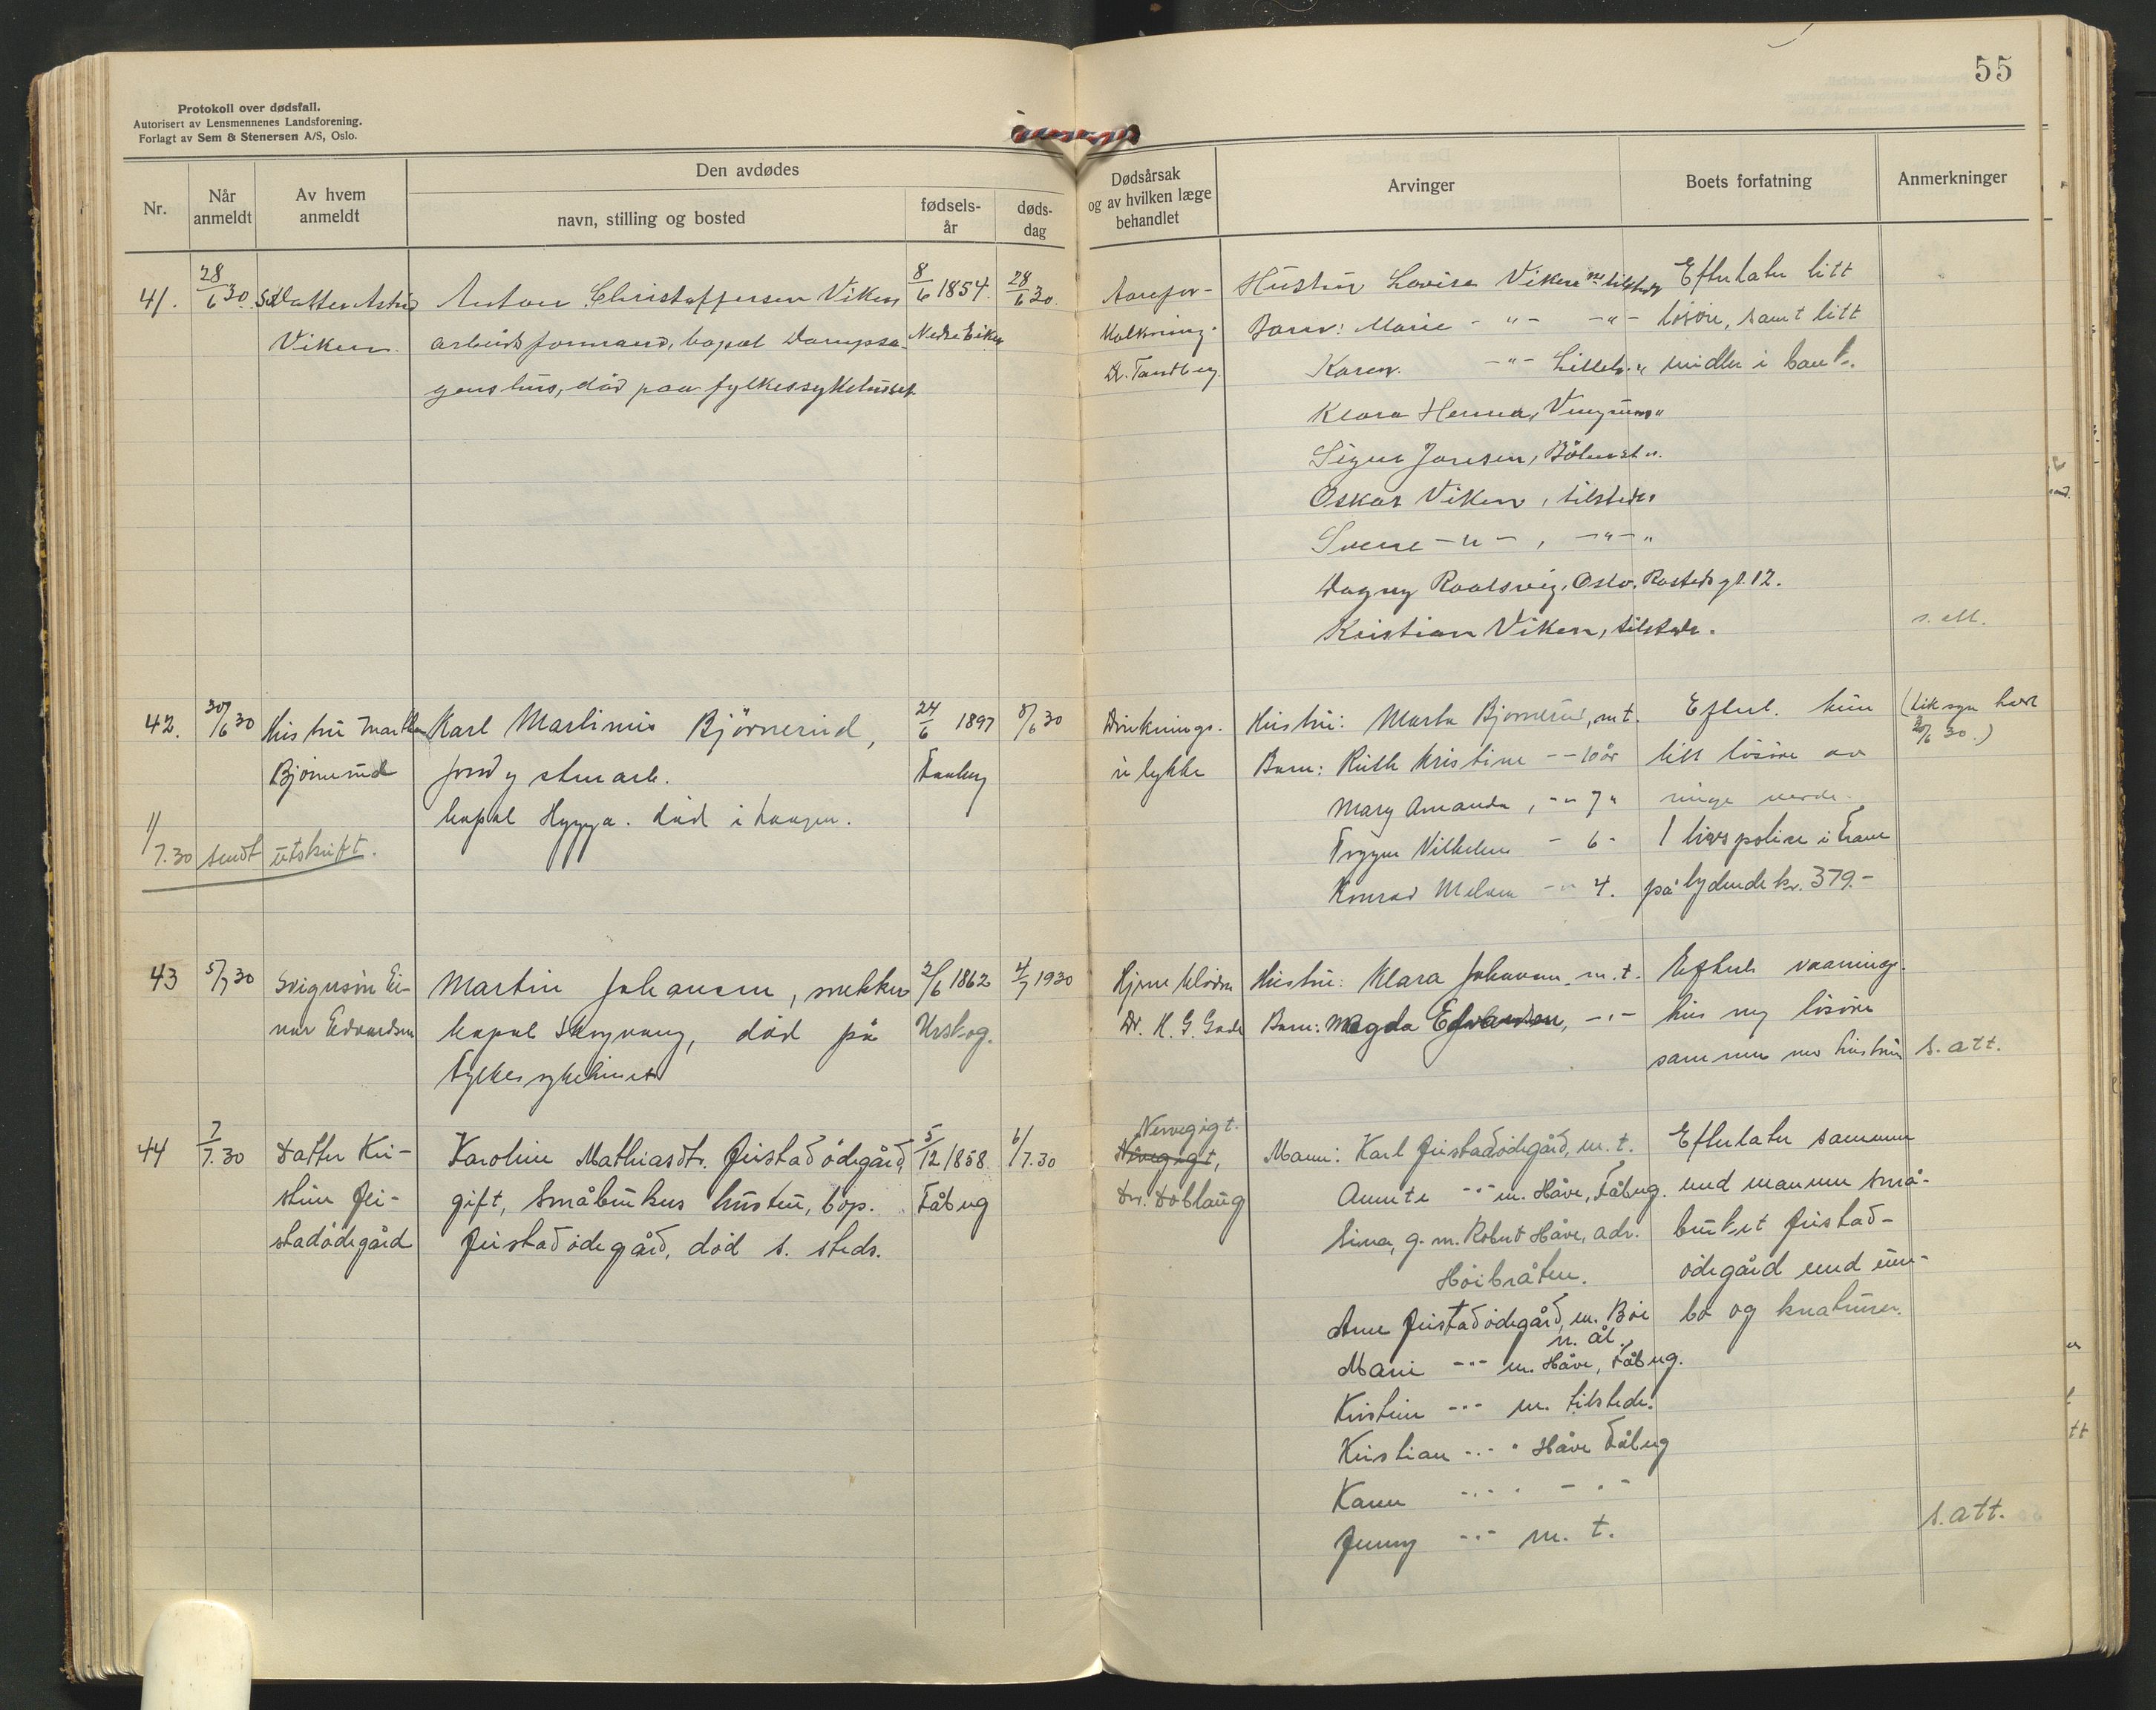 55
Protokoll over dødsfall.
Autorisert av Lensmennenes Landsforening.
Forlagt av Sem & Stenersen A/S, Oslo.
Nr.
Når anmeldt
Av hvem anmeldt
Den avdødes
navn, stilling og bosted
fødsels-år
døds-dag
Dødsårsak og av hvilken læge behandlet
Arvinger
Boets forfatning
Anmerkninger
41.
28/6 30.
Datter Astrid
Viken
Anton Christoffersen Viken
arbeidsformand, bopæl
død paa fylkessykehuset
8/6 1854.
Nedre Eiker
28/6 30.
Aarefor-
kalkning.
Dr. Tandberg
Hustru Lovise Viken tilsteds
Barn: Marie - " - - " -
Karen - " - Lilleh. "
Klara Henna, Vingrum "
Signe Jansen,
Oskar Viken, tilstede
Sverre - " - , - " - "
Dagny Raalsvig, Oslo, Rosteds gt. 12.
Kristian Viken, tilstede.
Efterlater litt
løsøre, samt litt
midler i bank.
s. att.
42.
30/6 30
Hustru Martha
Bjørnerud
Karl Martinius Bjørnerud,
jord og stenarb.
bopæl Hygga. død i Laagen.
24/6 1897
Faaberg
8/6 30
Druknings-
ulykke
Hustru: Marta Bjørnerud, m t.
Barn: Ruth Kristine - - 10 år
Mary Amanda, - " 7 "
Trygve Vilhelm - 6 -
Konrad - " 4.
Efterl. kun
litt løsøre av
ringe verdi.
1 livspolise i Fram
pålydende kr. 379.-
(Liksyn havt
30/6 30.)
1/7.30 sendt utskrift.
43
5/7 30
Svigersøn Ei-
nar Edvardsen
Martin Johansen, snekker
bopæl Skogvang, død på
Fylkessykehuset
2/6 1862
Urskog.
4/7 1930
Dr. H. G. Gade
Hustru: Klara Johansen m. t.
Barn: Magda Edvardsen, - " -
Efterl. vaanings-
hus og løsøre
sammen med hustru
s. att.
44
7/7.30
Datter Kri-
stine Jei-
stadødegård
Karoline Mathiasdtr. Jeistadødegård,
gift, Småbrukers hustru, bop.
Jeistadødegård, død s. steds.
5/12 1858
Fåberg
6/7.30
Nervegigt.
Nervegigt,
Dr. Doblaug
Mann: Karl Jeistadødegård, m. t.
Annite - " - m. Håve, Fåberg.
Lina, g. m. Robert Håve, adr.
Høibråten.
Arne Jeistadødegård, m. Bøe
n. ål.
Marie - " - m. Håve, Fåberg.
Kristine - " - m. tilstede.
Kristian - " - " Håve Fåberg
Karen - " - " - " -
Jenny - " - m. t.
Efterlater sammen
med mannen små-
bruket Jeistad-
ødegård med inn-
bo og kreaturer.
s. att.